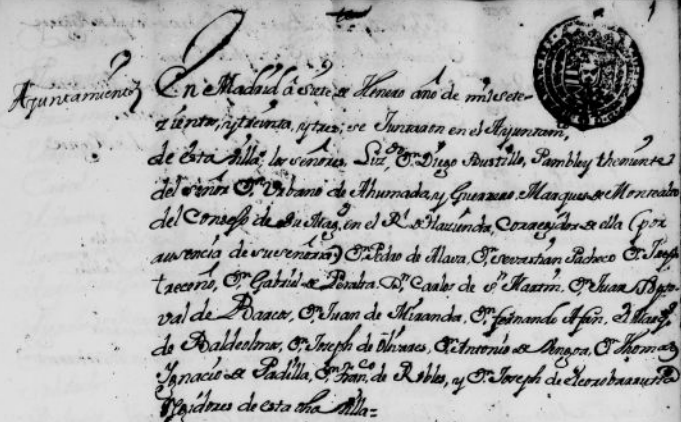 Ayuntamiento
En Madrid â siete de Henero año de mil sete-
zientos, y treinta, y tres; se Juntaron en el Ayuntam.to
de esta Villa; los señores, Liz.do D.n Diego Bustillo, Pambley theniente
del señor D.n Urbano de Ahumada, y Guerrero, Marques de Montealto
del Consejo de Su Mag.d en el R.l de Hazienda, Corregidor de ella (por
ausencia de su señoria) D.n Pedro de Alava, D.n sevastian Pacheco D.n Joseph
treceño, D.n Gabriel de Peralta, D.n Carlos de S.n Martin, D.n Juan
val de Barco, D.n Juan de Miranda, D.n fernando Afan, El Marq.s
de Valdeolmos, D.n Joseph de Olivares, D.n Antonio de Bengoa, D.n Thomas
Ignacio de Padilla, D.n Fran.co de Robles, y D.n Joseph de
Rejidores de esta dha Villa=